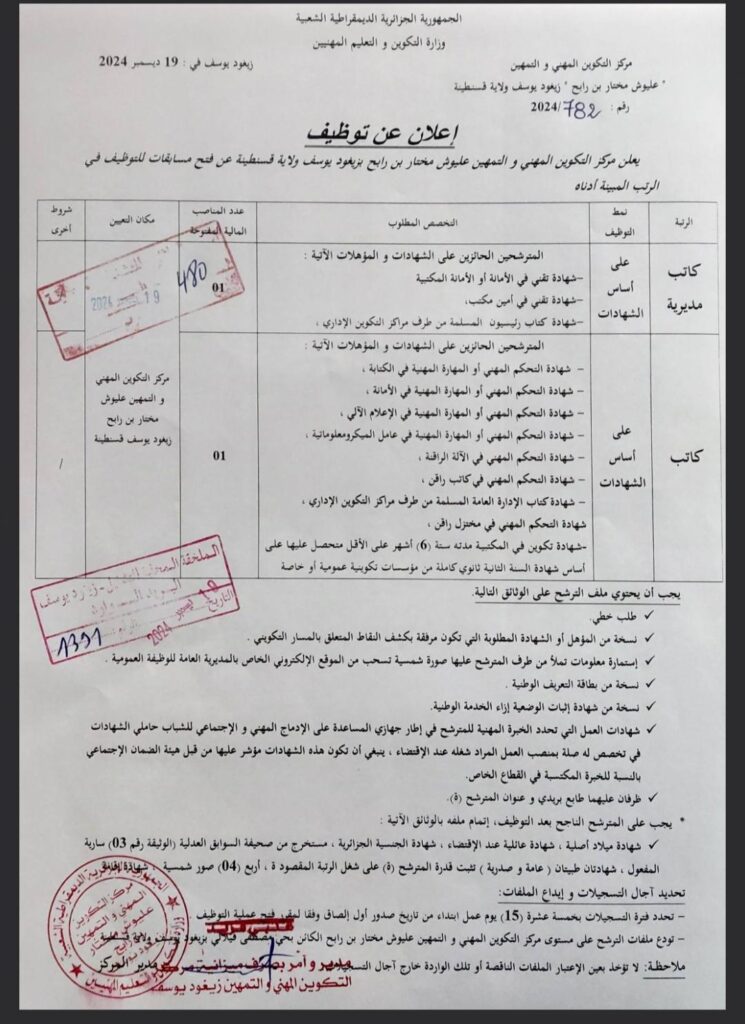 الجمهورية الجزائرية الديمقراطية الشعبية
وزارة التكوين و التعليم المهنيين
مركز التكوين المهني و التمهين
زيغود يوسف في : 19 ديسمبر 2024
" عليوش مختار بن رابح " زيغود يوسف ولاية قسنطينة
رقم : 782/2024
إعلان عن توظيف
يعلن مركز التكوين المهني و التمهين عليوش مختار بن رابح بزيغود يوسف ولاية قسنطينة عن فتح مسابقات للتوظيف في
الرتب المبينة أدناه
الرتبة
نمط التوظيف
التخصص المطلوب
عدد المناصب المالية المفتوحة
مكان التعيين
شروط أخرى
كاتب مديرية
على أساس الشهادات
المترشحين الحائزين على الشهادات و المؤهلات الآتية :
–شهادة تقني في الأمانة أو الأمانة المكتبية
–شهادة تقني في أمين مكتب،
–شهادة كتاب رئيسيون المسلمة من طرف مراكز التكوين الإداري ،
01
480
19
2024
كاتب
على أساس الشهادات
المترشحين الحائزين على الشهادات و المؤهلات الآتية :
– شهادة التحكم المهني أو المهارة المهنية في الكتابة ،
– شهادة التحكم المهني أو المهارة المهنية في الأمانة ،
– شهادة التحكم المهني أو المهارة المهنية في الإعلام الآلي ،
– شهادة التحكم المهني أو المهارة المهنية في عامل الميكرومعلوماتية ،
– شهادة التحكم المهني في الآلة الراقنة ،
– شهادة التحكم المهني في كاتب راقن ،
– شهادة كتاب الإدارة العامة المسلمة من طرف مراكز التكوين الإداري ،
شهادة التحكم المهني في مختزل راقن ،
–شهادة تكوين في المكتبية مدته ستة (6) أشهر على الأقل متحصل عليها على
أساس شهادة السنة الثانية ثانوي كاملة من مؤسسات تكوينية عمومية أو خاصة
01
مركز التكوين المهني
و التمهين عليوش
مختار بن رابح
زيغود يوسف قسنطينة
/
يجب أن يحتوي ملف الترشح على الوثائق التالية.
✓ طلب خطي.
✓ نسخة من المؤهل أو الشهادة المطلوبة التي تكون مرفقة بكشف النقاط المتعلق بالمسار التكويني .
✓ إستمارة معلومات تملأ من طرف المترشح عليها صورة شمسية تسحب من الموقع الإلكتروني الخاص بالمديرية العامة للوظيفة العمومية .
✓ نسخة من بطاقة التعريف الوطنية .
✓ نسخة من شهادة إثبات الوضعية إزاء الخدمة الوطنية.
✓ شهادات العمل التي تحدد الخبرة المهنية للمترشح في إطار جهازي المساعدة على الإدماج المهني و الإجتماعي للشباب حاملي الشهادات
في تخصص له صلة بمنصب العمل المراد شغله عند الإقتضاء ، ينبغي أن تكون هذه الشهادات مؤشر عليها من قبل هيئة الضمان الإجتماعي
بالنسبة للخبرة المكتسبة في القطاع الخاص.
✓ ظرفان عليهما طابع بريدي و عنوان المترشح (ة).
* يجب على المترشح الناجح بعد التوظيف، إتمام ملفه بالوثائق الآتية :
✓ شهادة ميلاد أصلية ، شهادة عائلية عند الإقتضاء ، شهادة الجنسية الجزائرية ، مستخرج من صحيفة السوابق العدلية (الوثيقة رقم 03) سارية
المفعول ، شهادتان طبيتان ( عامة و صدرية ) تثبت قدرة المترشح (ة) على شغل الرتبة المقصودة ، أربع (04) صور شمسية ، شهادة إقامة
تحديد آجال التسجيلات و إيداع الملفات:
– تحدد فترة التسجيلات بخمسة عشرة (15) يوم عمل ابتداء من تاريخ صدور أول إلصاق وفقا لمقرر فتح عملية التوظيف
– تودع ملفات الترشح على مستوى مركز التكوين المهني و التمهين عليوش مختار بن رابح الكائن بحي مصطفى فيلالي بزيغود يوسف ولاية قسنطينة
ملاحظة: لا تؤخذ بعين الإعتبار الملفات الناقصة أو تلك الواردة خارج آجال التسجيلات
مدير المركز
التاريخ
ديسمبر 2024
1391
مدير و آمر بصرف ميزانية مركز
التكوين المهني و التمهين زيغود يوسف